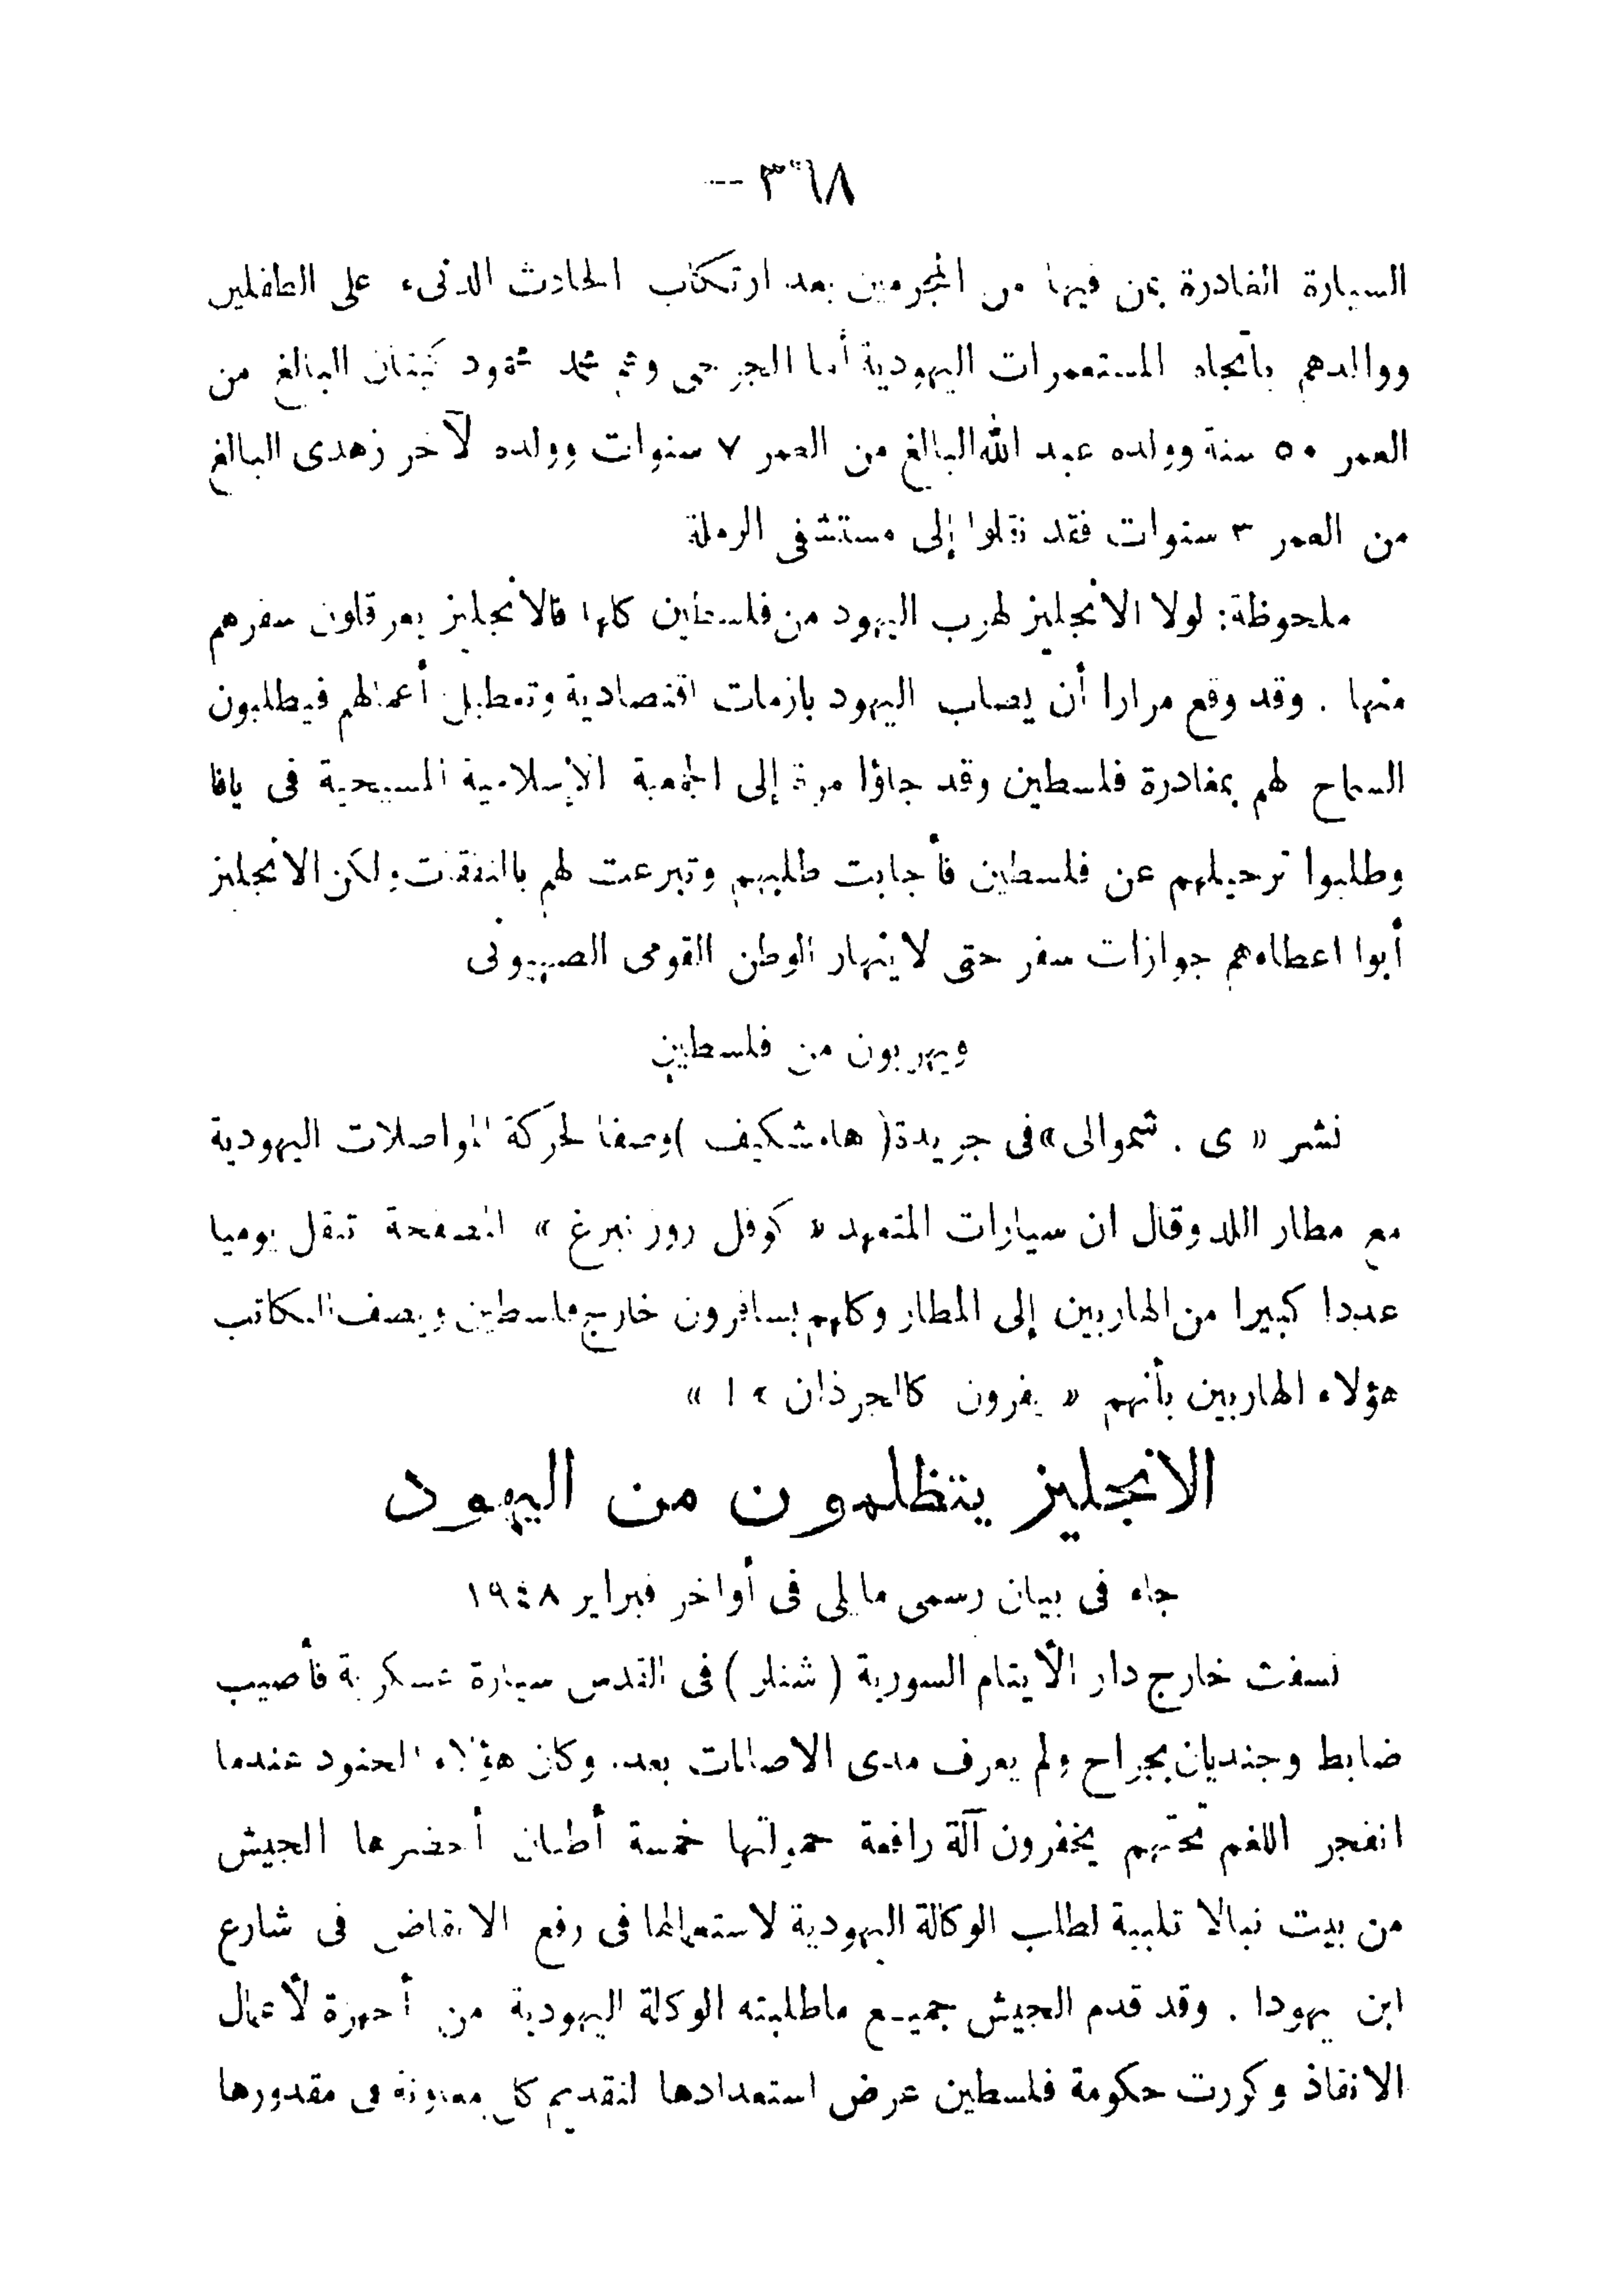 ٣٦٨ —
السيارة الغادرة بمن فيها من المجرمين بعد ارتكاب الحادث الدنىء على الطفلين
ووالدهم باتجاه المستعمرات اليهودية أما الجرحى وهم محمد محمود البالغ من
العمر ٥٠ سنة وولده عبد الله البالغ من العمر ٧ سنوات وولده لآخر زهدى البالغ
من العمر ٣ سنوات فقد نقلوا إلى مستشفى الرملة
ملحوظة: لولا الانجليز لهرب اليهود من فلسطين كلها فالانجليز يعرقلون سفرهم
منها . وقد وقع مرارا أن يصاب اليهود بازمات اقتصادية وتعطيل أعمالهم فيطلبون
السماح لهم بمغادرة فلسطين وقد جاؤا مرة إلى الجمعية الإسلامية المسيحية فى يافا
وطلبوا ترحيلهم عن فلسطين فأجابت طلبهم وتبرعت لهم بالنفقات ولكن الانجليز
أبوا اعطاءهم جوازات سفر حتى لاينهار الوطن القومى الصهيونى
ويهربون من فلسطين
نشر « ى . شموالى » فى جريدة ( هامشكيف ) وصفا لحركة المواصلات اليهودية
مع مطار اللد وقال ان سيارات المتعهد « كوفل روزنبرغ » المصفحة تنقل يوميا
عددا كبيرا من الهاربين إلى المطار وكلهم يسافرون خارج فلسطين ويصف الكاتب
هؤلاء الهاربين بأنهم « يفرون كالجرذان » ! »
الانجليز يتظلمون من اليهود
جاء فى بيان رسمى مايلى فى أواخر فبراير ١٩٤٨
نسفت خارج دار الأيتام السورية ( شنلر ) فى القدس سيارة عسكرية فأصيب
ضابط وجنديان بجراح ولم يعرف مدى الاصابات بعد. وكان هؤلاء الجنود عندما
انفجر اللغم تحتهم يخفرون آلة رافعة حمولتها خمسة أطنان أحضرها الجيش
من بيت نبالا تلبية لطلب الوكالة اليهودية لاستعمالها فى رفع الانقاض فى شارع
ابن يهودا . وقد قدم الجيش جميع ماطلبته الوكالة اليهودية من أجهزة لأعمال
الانقاذ وكررت حكومة فلسطين عرض استعدادها لتقديم كل معاونة فى مقدورها